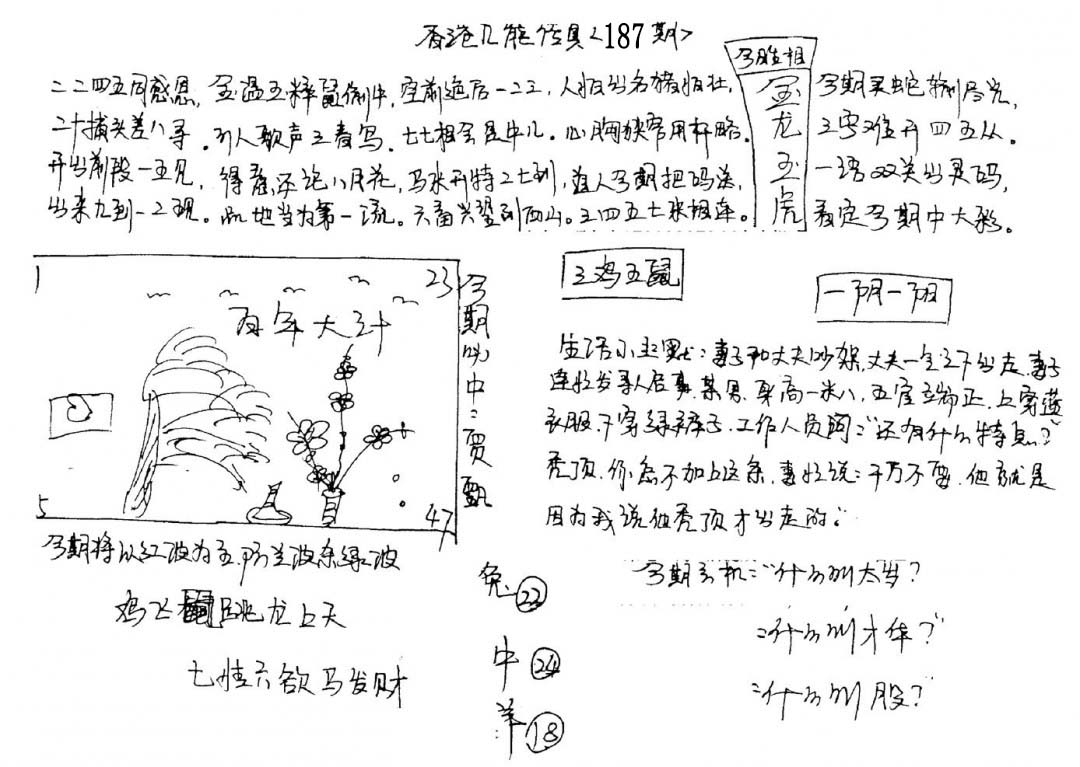 香港几能传真<187期>
今期生相
金龙玉虎
二二四五同感恩，金温五粹鼠倒中，空前绝后一二三，人怕出名猪怕壮，
今期灵蛇
二十捕头差八寻。引人歌声三青鸟。七七相会是中儿。心胸狭窄用杆略。
三字难开四五从。
开出前段一五见，得意不记八月花，马来开特二七到，道人今期把码送，
一语双关出灵码，
出来九到一二现。此地当为第一流。六畜兴望到西山。三四五七来相连。
看定今期中大彩。
1
23
百年大计
5
47
今期必中：贾甄
三鸡五鼠
一阴一阳
生活小幽默：妻子和丈夫吵架，丈夫一气之下出走，妻子
连忙发寻人启事，某男，身高一米八，五官端正，上穿蓝
衣服，下穿绿裤子，工作人员问：“还有什么特点？”
秃顶，你怎不加上这条，妻忙说：千万不要，他就是
因为我说他秃顶才出走的。
今期将以红波为主，防兰波杀绿波
鸡飞鼠跳龙上天
七情六欲马发财
兔22
中24
羊18
今期玄机：“什么叫太岁？
：什么叫才华？”
：什么叫股？”